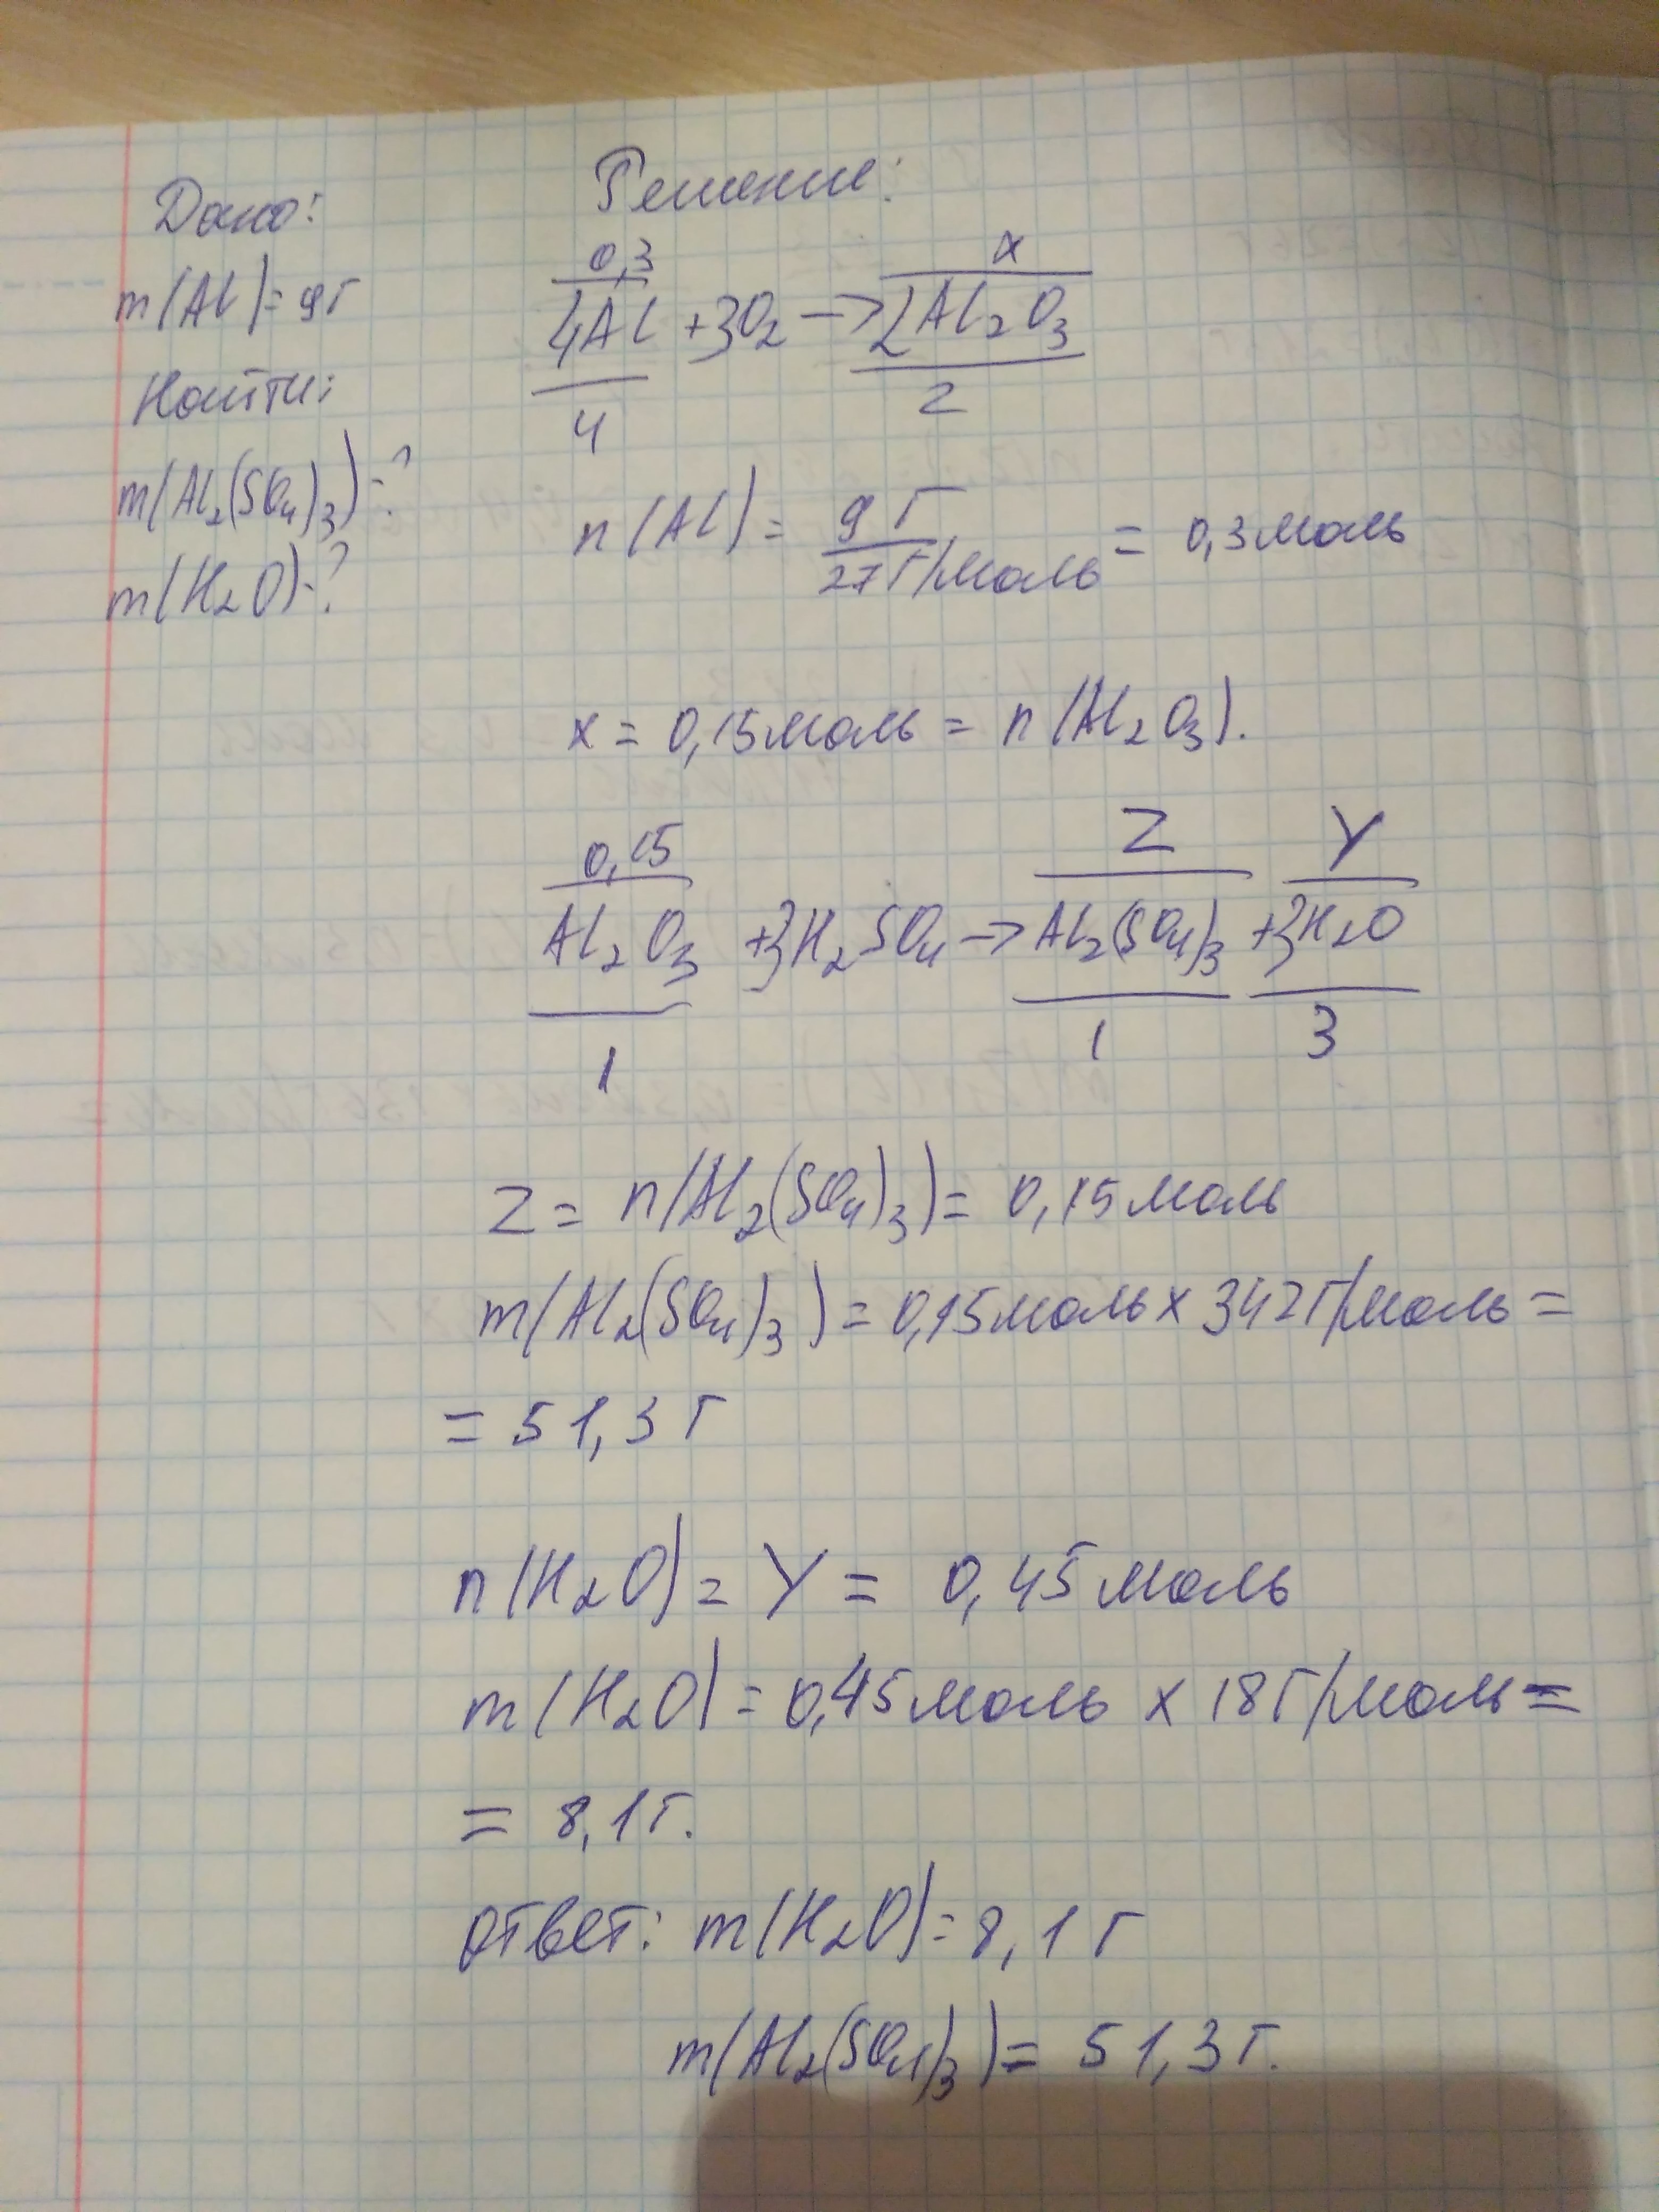 Дано:
m(Al)=9г
Найти:
m(Al₂(SO₄)₃)-?
m(H₂O)-?
Решение:
0,3 x
4Al +3O₂ → 2Al₂O₃
4 2
n(Al) = 9 г / 27 г/моль = 0,3 моль
x = 0,15 моль = n(Al₂O₃).
0,15 Z Y
Al₂O₃ +3H₂SO₄ → Al₂(SO₄)₃ +3H₂O
1 1 3
Z = n(Al₂(SO₄)₃) = 0,15 моль
m(Al₂(SO₄)₃) = 0,15 моль x 342 г/моль =
= 51,3 г
n(H₂O) = Y = 0,45 моль
m(H₂O) = 0,45 моль x 18 г/моль =
= 8,1 г.
ответ: m(H₂O) = 8,1 г
m(Al₂(SO₄)₃) = 51,3 г.